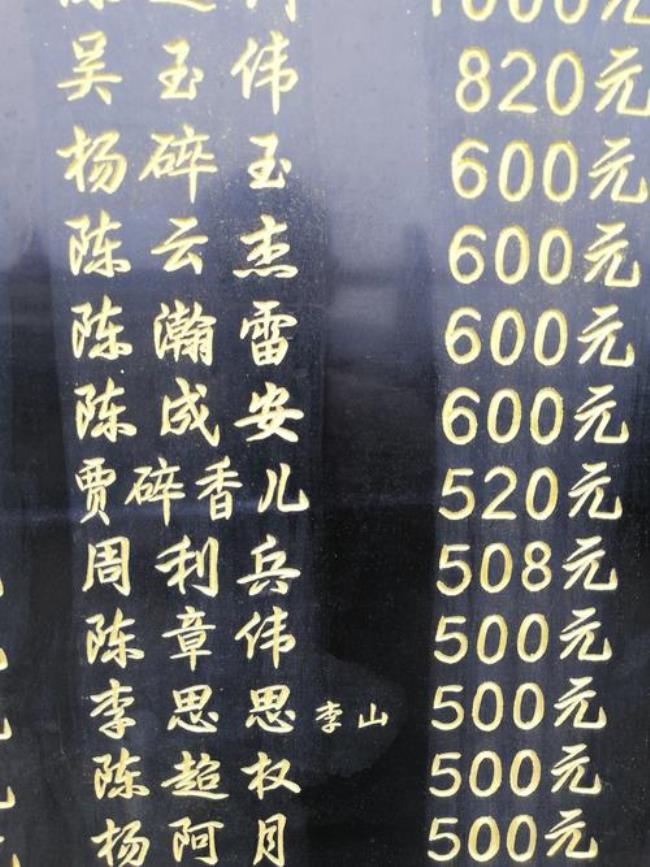 1000元
吴玉伟 820元
杨碎玉 600元
陈云杰 600元
陈瀚雷 600元
陈成安 600元
贾碎香儿 520元
周利兵 508元
陈章伟 500元
李思思 李山 500元
陈超权 500元
杨阿月 500元